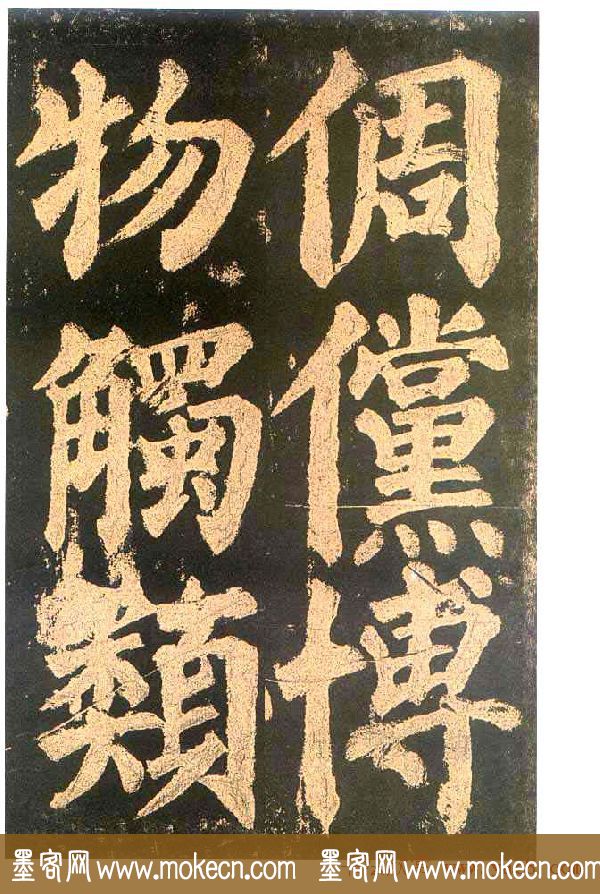 倜儻博
物觸類
墨客网 www.mokecn.com 墨客网 www.mokecn.com